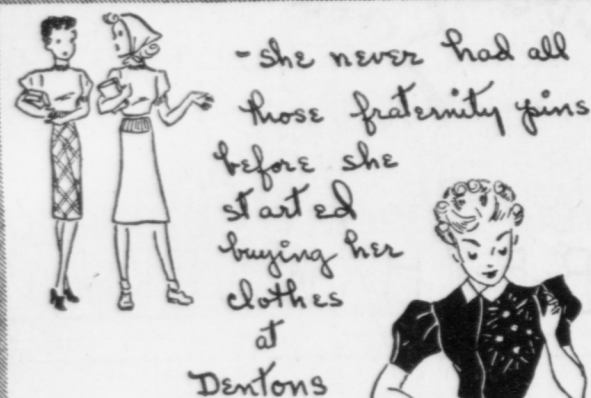 -she never had all
those fraternity pins
before she
started
buying her
clothes
at
Dentons